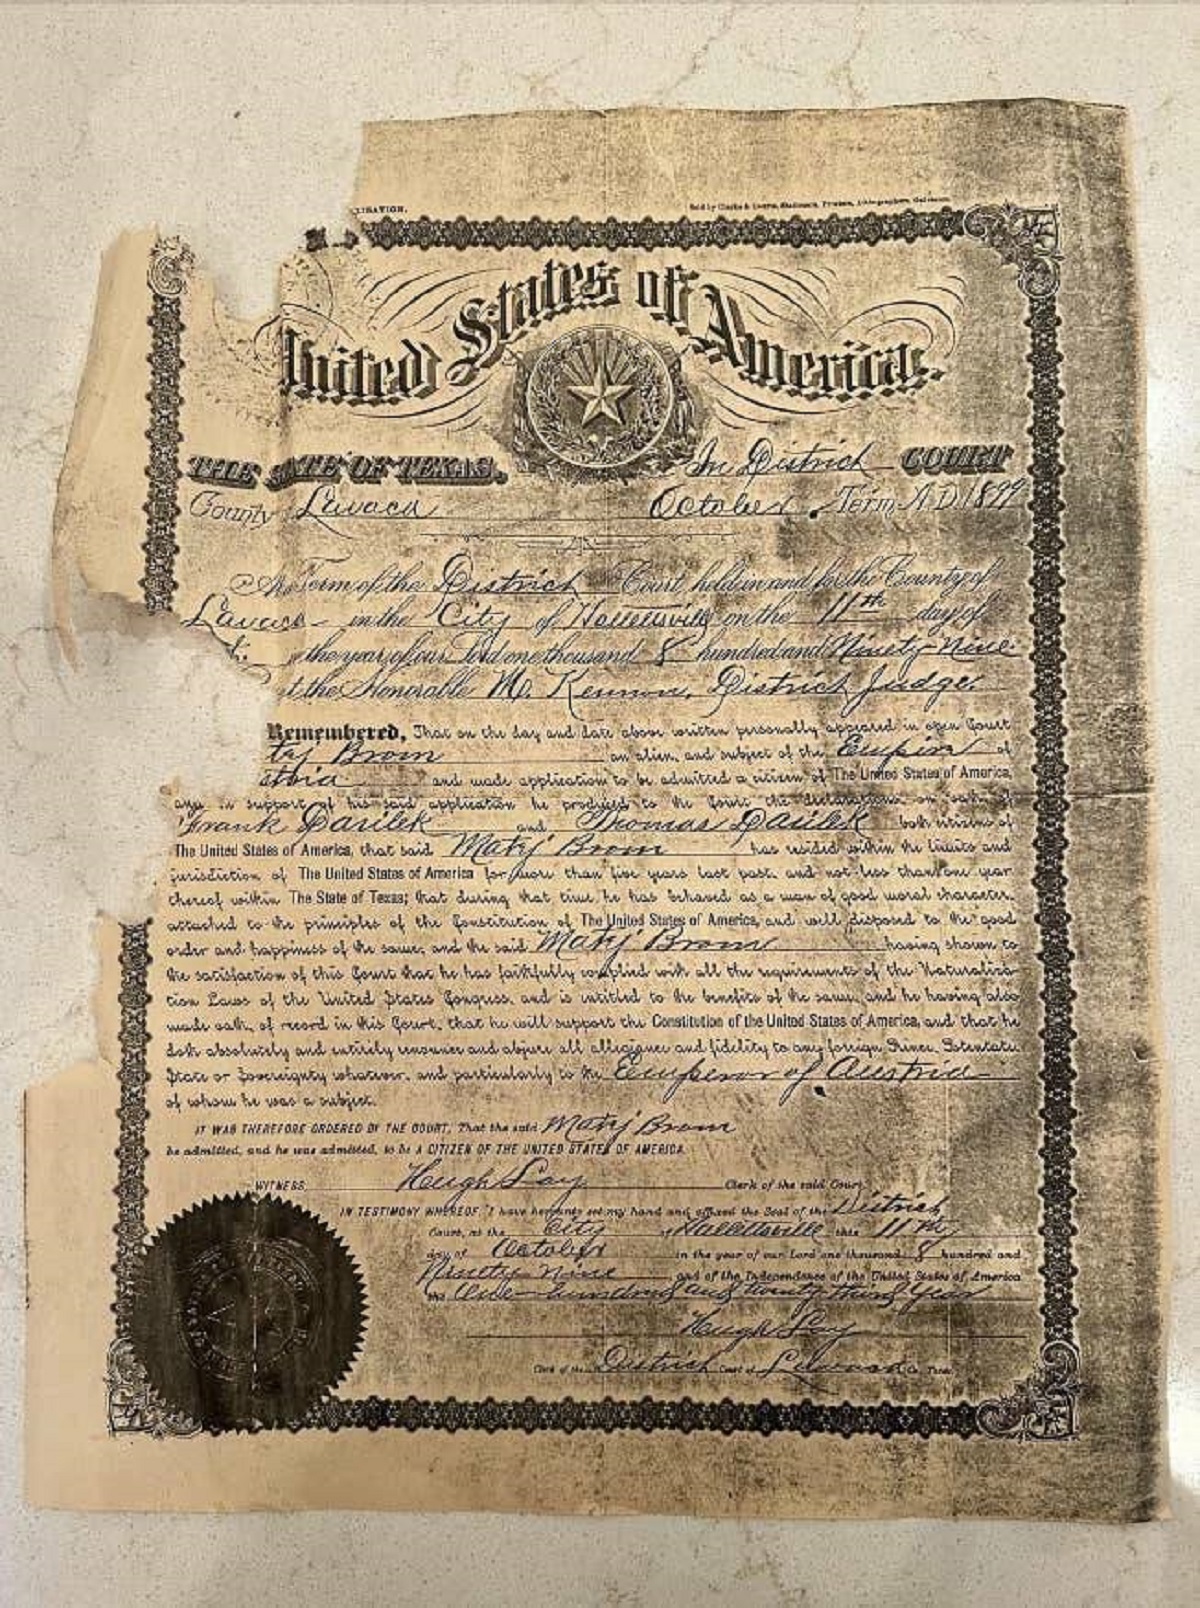 LIZATION.
Sold by Clarke & Courts, Stationers, Printers, Lithographers, Galveston.
United States of America.
THE STATE OF TEXAS. In District COURT
County Lavaca October Term, A.D. 1899
At a Term of the District Court, held in and for the County of
Lavaca in the City of Hallettsville on the 11th day of
the year of our Lord one thousand 8 hundred and Ninety-Nine
t the Honorable M. Kennon, District Judge.
Remembered, That on the day and date above written personally appeared in open Court
tej Brom an alien, and subject of the Empire of
stria and made application to be admitted a citizen of The United States of America,
and in support of his said application he produced to the Court the declarations on oath of
Frank Darilek and Thomas Darilek both citizens of
The United States of America, that said Matej Brom has resided within the limits and
jurisdiction of The United States of America for more than five years last past, and not less than one year
thereof within The State of Texas; that during that time, he has behaved as a man of good moral character,
attached to the principles of the Constitution of The United States of America, and well disposed to the good
order and happiness of the same; and the said Matej Brom having shown to
the satisfaction of this Court that he has faithfully complied with all the requirements of the Naturaliza-
tion Laws of the United States Congress, and is entitled to the benefits of the same, and he having also
made oath, of record in this Court, that he will support the Constitution of the United States of America, and that he
doth absolutely and entirely renounce and abjure all allegiance and fidelity to any foreign Prince, Potentate
State or Sovereignty whatever, and particularly to the Emperor of Austria
of whom he was a subject.
IT WAS THEREFORE ORDERED BY THE COURT, That the said Matej Brom
be admitted, and he was admitted, to be A CITIZEN OF THE UNITED STATES OF AMERICA.
WITNESS, Hugh Lay Clerk of the said Court.
IN TESTIMONY WHEREOF, I have hereunto set my hand and affixed the Seal of the District
Court, at the City of Hallettsville this 11th
day of October in the year of our Lord one thousand 8 hundred and
Ninety Nine and of the Independence of the United States of America
the One hundred and twenty third Year
Hugh Lay
Clerk of the District Court of Lavaca Co. Texas.